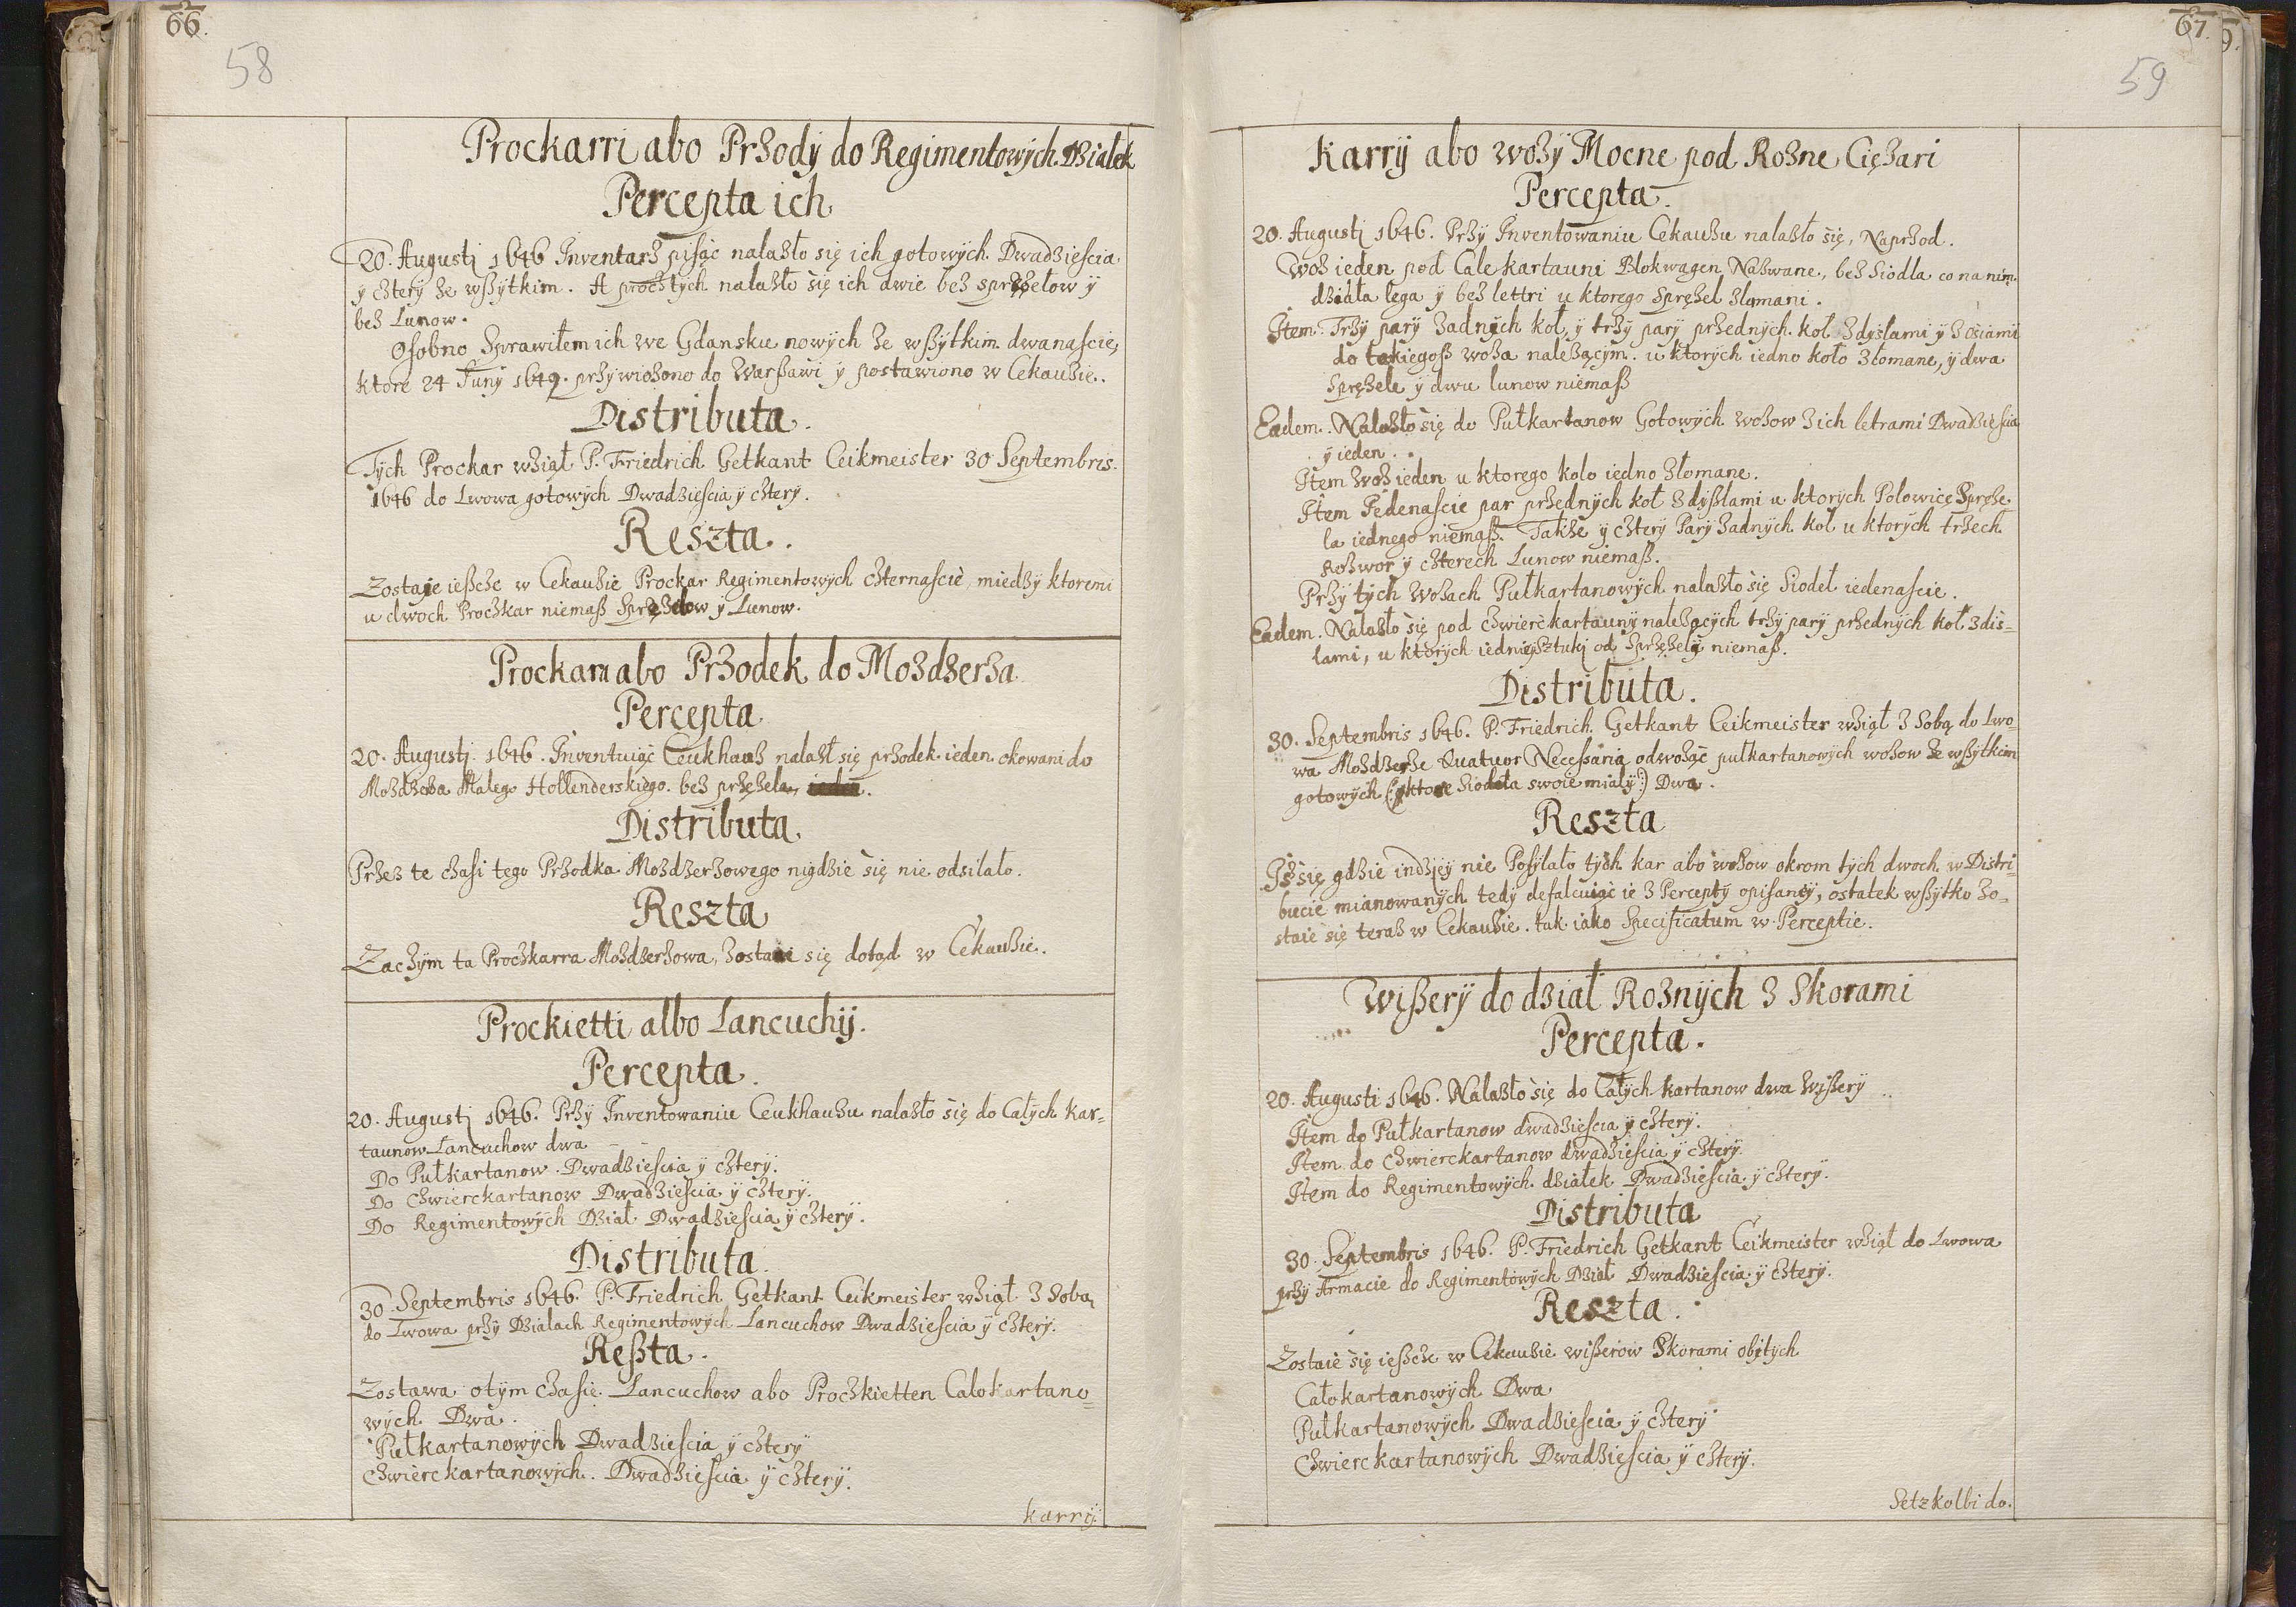 66.
58
Prockarri abo Przody do Regimentowych Dzialek
Percepta ich
20. Augusti 1646 Inventarz pisąc nalazło się ich gotowych Dwadziescia
y cztery ze wßytkim. A procz tych nalazło się ich dwie bez sprzęzelow y
bez Lunow.
Osobno Sprawiłem ich we Gdansku nowych ze wßytkim dwanascie,
ktore 24 Juny 1649. przywiozono do Warßawi y postawiono w Cekauzie.
Distributa.
Tych Prockar wziął P. Friedrich Getkant Ceikmeister 30 Septembris.
1646 do Lwowa gotowych Dwadziescia y cztery.
Reszta.
Zostaie ießcze w Cekauzie Prockar Regimentowych czternascie, miedzy ktoremi
u dwoch Prockar niemaß Spręzelow y Lunow.
Prockara abo Przodek do Mozdzerza
Percepta
20. Augusti. 1646. Inventuiąc Ceukhauz nalazł się przodek ieden okowani do
Mozdzerza Malego Hollenderskiego. bez pręzela,
Distributa.
Przez te czasi tego Przodka Mozdzerzowego nigdzie się nie odsilało.
Reszta
Zaczym ta Prockarra Mozdzerzowa, zostaie się dotąd w Cekauzie.
Prockietti albo Lancuchÿ.
Percepta.
20. Augusti 1646. Przy Inventowaniu Ceukhauzu nalazło się do Całych Kar=
taunow Lancuchow dwa
Do Pułkartanow. Dwadziescia y cztery.
Do Chwierckartanow Dwadziescia y cztery.
Do Regimentowych Dział Dwadziescia y cztery.
Distributa.
30. Septembris 1646. P. Friedrich Getkant Ceikmeister wziął z Sobą
do Lwowa przy Działach Regimentowych Lancuchow Dwadziescia y cztery.
Reßta.
Zostawa otym czasie Lancuchow abo Prochkietten Całokartano=
wych Dwa.
Pułkartanowych Dwadziescia y cztery
Chwierckartanowych. Dwadziescia y cztery.
Karrÿ.
67.
59
9.
Karrÿ abo wozy Mocne pod Rozne Ciężari
Percepta.
20. Augusti 1646. Przy Inventowaniu Cekauzu nalazło się, Naprzod.
Woz ieden pod Cale kartauni Blokwagen Nazwane, bez Siodla co na nim
działa lega y bez lettri u ktorego Spręzel złamani.
Item: Trzy pary zadnych koł, y trzy pary przednych koł z dyslami y z osiami
do takiegoß woza nalezącym. u ktorych iedno koło złomane, y dwa
Spręzele y dwu lunow niemaß
Eadem. Nalazło się do Pułkartanow Gotowych wozow z ich letrami Dwadziescia
y ieden.
Item Woz ieden u ktorego koło iedno złomane.
Item Iedenascie par przednych koł z dyßlami u ktorych Polowicę Spręze
la iednego niemaß. Takze y cztery Pary zadnych koł u ktorych trzech
Rozwor y czterech Lunow niemaß.
Przy tych Wozach Pułkartanowych nalazło się Siodeł iedenascie.
Eadem. Nalazło się pod chwierckartauny nalezących trzy pary przednych koł z dis=
lami, u ktorych iedniey sztuki od Spręzely niemaß.
Distributa.
30. Septembris 1646. P. Friedrich Getkant Ceikmeister wziął z Sobą do Lwo=
wa Mozdzerze Quatuor Necessaria odwożąc pułkartanowych wozow ze wßytkim
gotowych (: ktore Siodeła swoie miały :) Dwa.
Reszta
Iż się gdzie indziey nie Posyłało tych kar abo wozow okrom tych dwoch w Distri=
bucie mianowanych tedy defalcuiąc ie z Percepty opisaney, ostatek wßytko zo=
staie się teraz w Cekauzie. tak iako Specificatum w Perceptie.
Wißerÿ do dział Roznych z Skorami
Percepta.
20. Augusti 1646. Nalazło się do Całych kartanow dwa Wißery
Item do Pułkartanow dwadziescia y cztery.
Item do Chwierckartanow dwadziescia y cztery.
Item do Regimentowych działek Dwadziescia y cztery.
Distributa
30. Septembris 1646. P. Friedrich Getkant Ceikmeister wziął do Lwowa
przy Armacie do Regimentowych Dział Dwadziescia y cztery.
Reszta.
Zostaie się ießcze w Cekauzie wißerow Skorami obitych
Całokartanowych Dwa
Pułkartanowych Dwadziescia y cztery
Chwierckartanowych Dwadziescia y cztery.
Setzkolbi do.